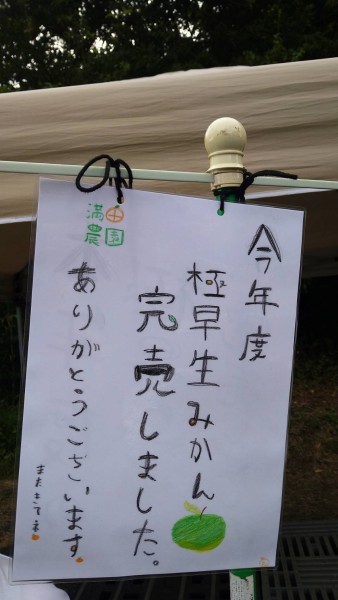 今年度
極早生みかん
完売しました。
ありがとうございます。
またきてネ
満田
農園